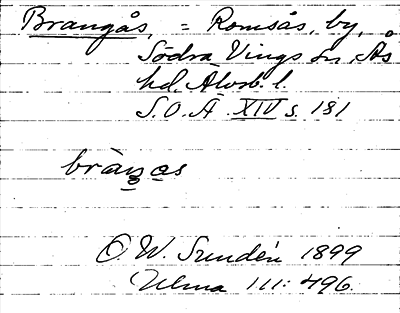 Brangås, = Romsås, by,
Södra Vings sn, Ås
hd. Älvsb. l.
S.O.Ä. XIV s. 181
bràŋas
O.W. Sundén 1899
Ulma 111: 496.